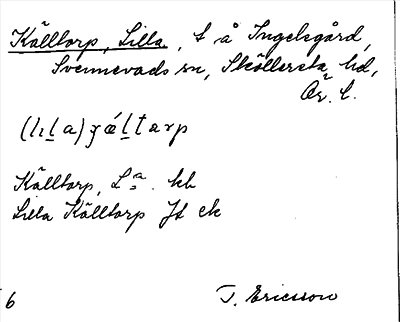 Källtorp, Lilla, t å Ingelsgård,
Svennevads sn, Sköllersta hd,
Ör. l.
(lɪla) ɟæltarp
Källtorp, L:a. kb
Lilla Källtorp Jt ek
6 T. Ericsson